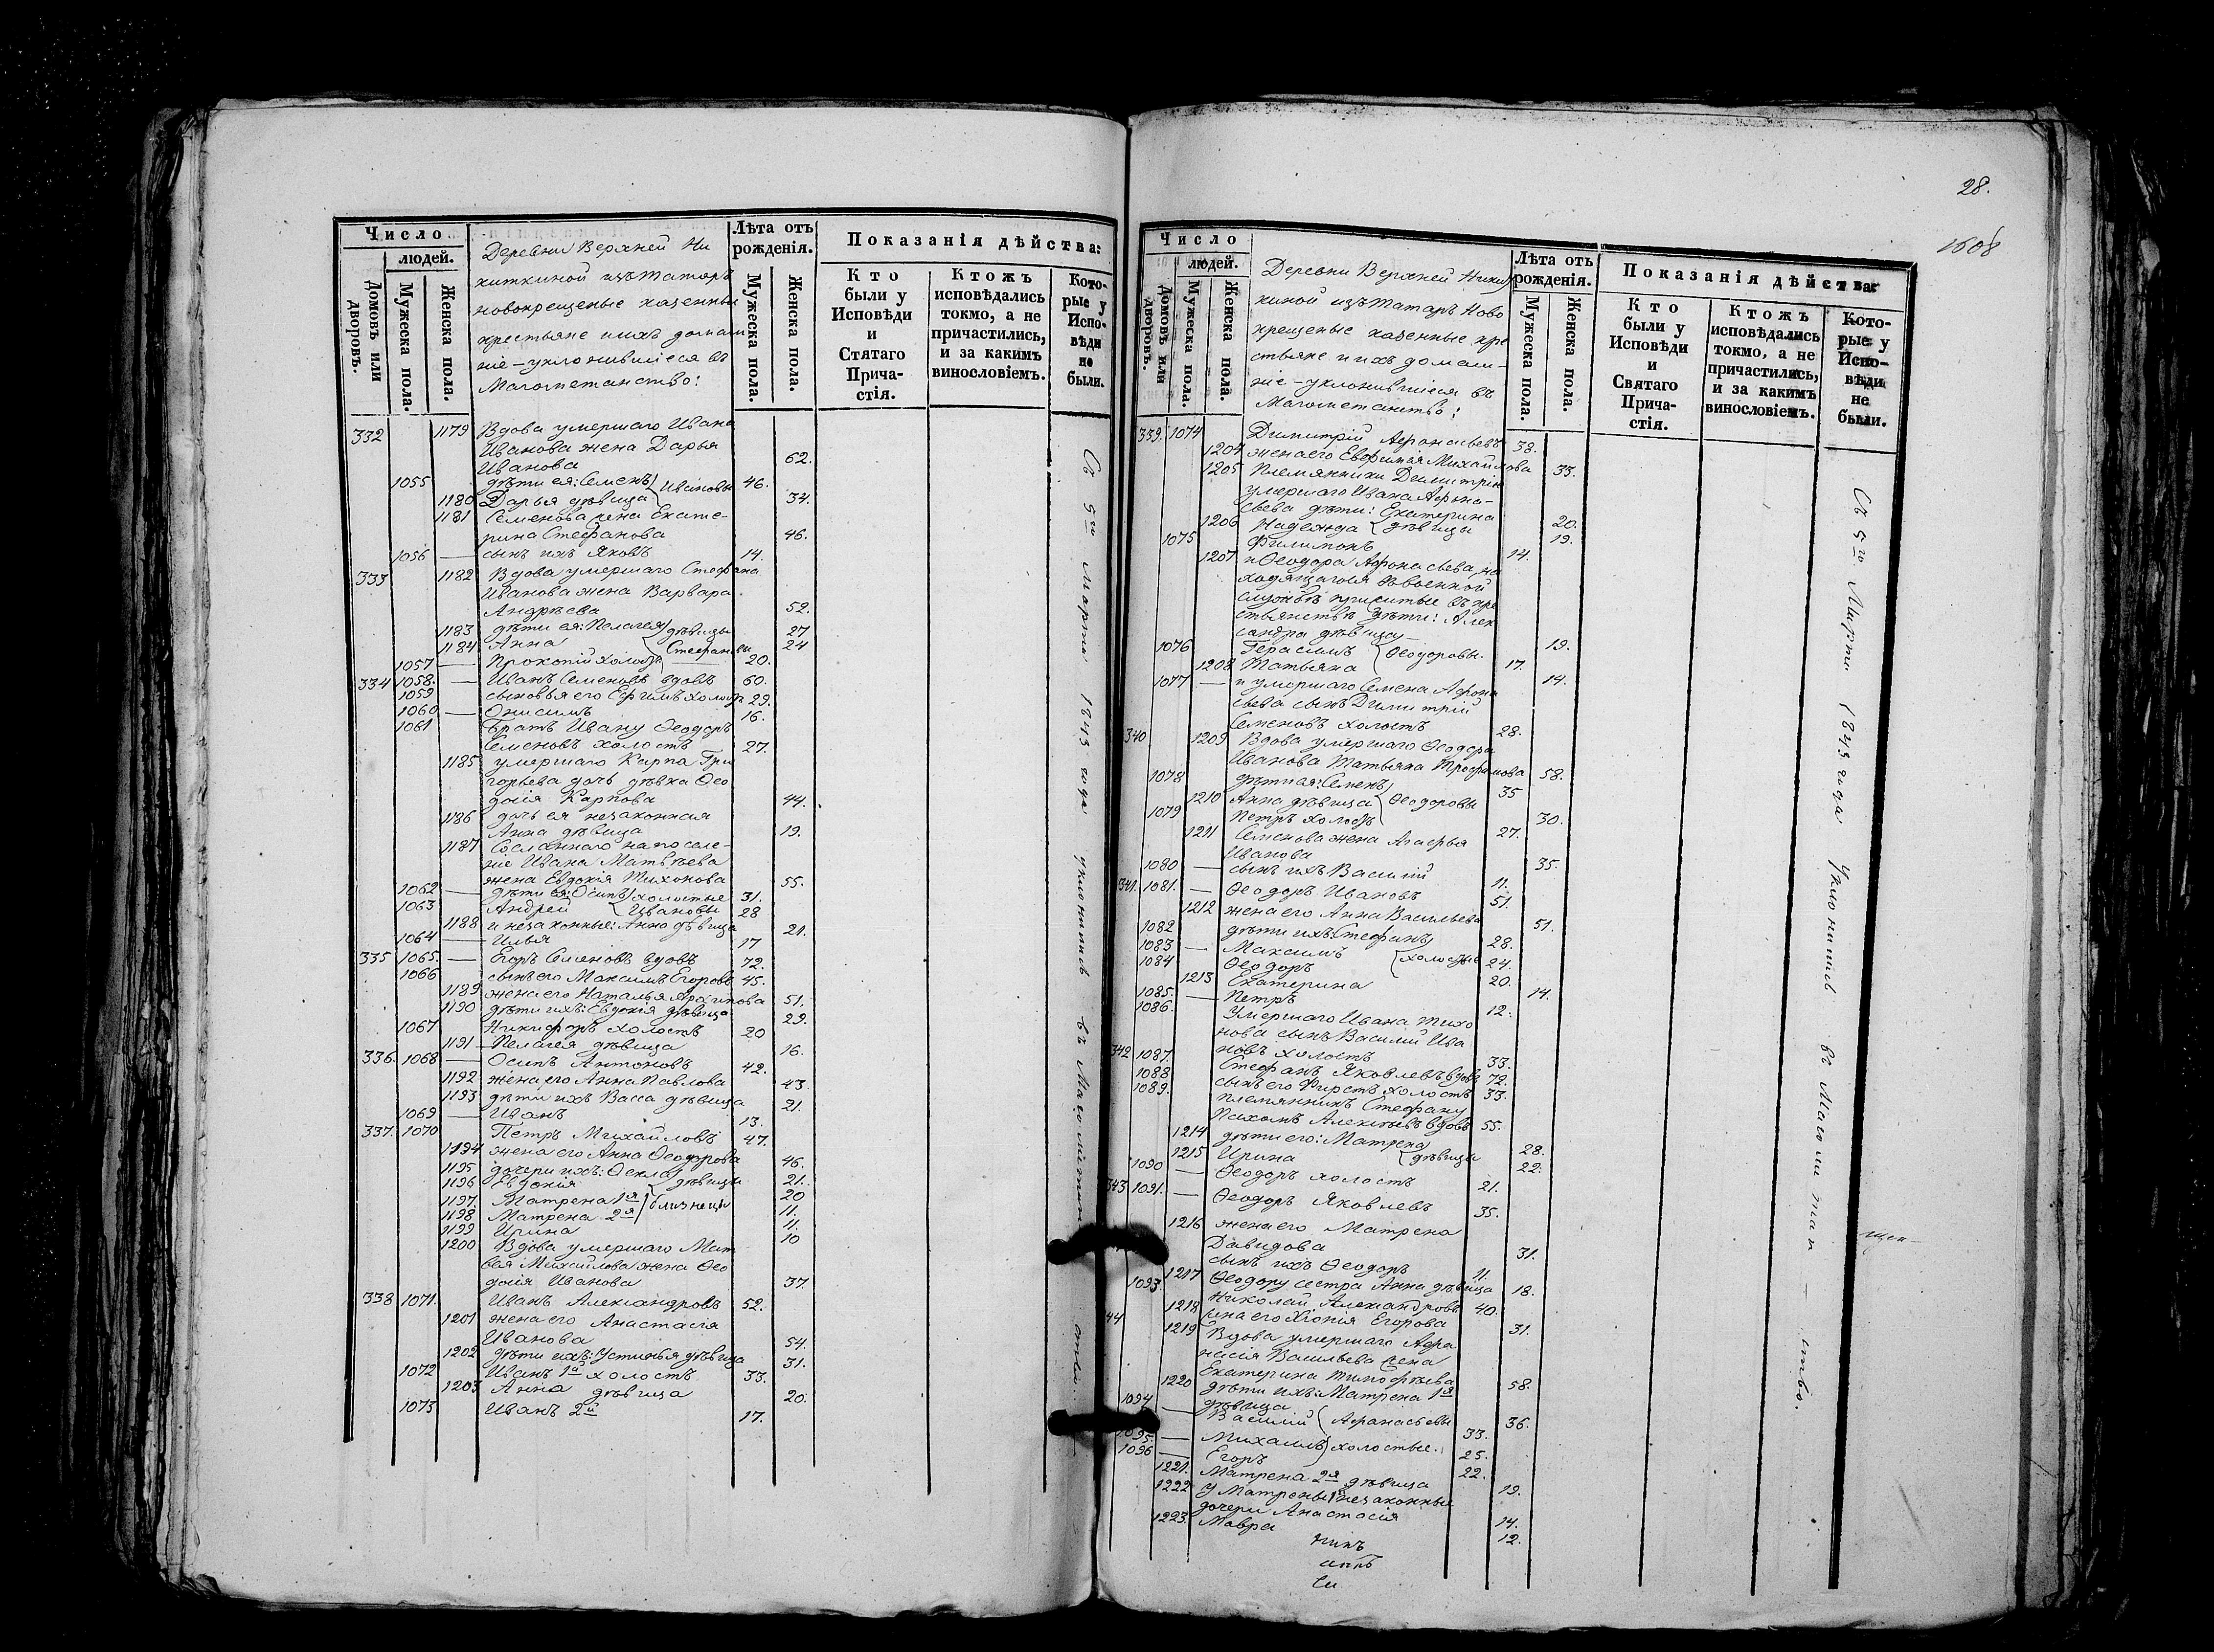 Число
людей.
Домовъ или дворовъ.
Мужеска пола.
Женска пола.
Деревни Верхней Ни
киткиной изъ татаръ
новокрещеные казенные
крестьяне и ихъ домаш
ніе – уклонившіеся въ
Магометанство:
Лѣта отъ рожденія.
Мужеска пола.
Женска пола.
Показанія дѣйства:
Кто были у Исповѣди и Стятаго Прича-стія.
Ктожъ исповѣдались токмо, а не причастились, и за какимъ винословіемъ.
Кото-рые у Испо-вѣди не были.
332 1179 Вдова умершаго Ивана
Иванова жена Дарья
Иванова 62.
1055 дѣти ея: Семенъ Ивановы 46.
1180 Дарья дѣвица 34.
1181 Семенова жена Екате-
рина Стефанова 46.
1056 — сынъ ихъ Яковъ 14.
333 1182 Вдова умершаго Стефана
Иванова жена Варвара
Андрѣева 52.
1183 дѣти ея: Пелагея дѣвицы 27
1184 Анна Стефановы 24
1057 — Прокопій холостъ — 20.
334 1058. — Иванъ Семеновъ вдовъ 60.
1059 сыновья его Ефимъ холостъ 29.
1060 — Онисимъ 16.
1061 Братъ Ивану Ѳеодоръ
Семеновъ холостъ 27.
1185 умершаго Карпа Гри
горьева дочь дѣвка Ѳео
досія Карпова 44.
1186 дочь ея незаконная
Анна дѣвица 19.
1187 Сосланнаго на поселе-
ніе Ивана Матвѣева
жена Евдокія Тихонова 55.
1062 — дѣти ея: Осипъ холостые 31.
1063 Андрей Ивановы 28
1188 и незаконные: Анна дѣвица 21.
1064 — Илья 17
335 1065. — Егоръ Семеновъ вдовъ 72.
1066 сынъ его Максимъ Егоровъ 45.
1189 жена его Наталья Архипова 51.
1190 дѣти ихъ: Евдокія дѣвица 29.
1067 Никифоръ холостъ 20
1191 Пелагея дѣвица 16.
336. 1068 — Осипъ Антоновъ 42.
1192 жена его Анна Павлова 43.
1193 дѣти ихъ Васса дѣвица 21.
1069 — Иванъ 13.
337. 1070 Петръ Михайловъ 47.
1194 жена его Анна Ѳеодорова 46.
1195 дочери ихъ: Ѳекла дѣвицы 21.
1196 Евдокія 20
1197 Матрена 1я близнецы 11.
1198 Матрена 2я 11.
1199 Ирина 10
1200 Вдова умершаго Мат
вея Михайлова жена Ѳео
досія Иванова 37.
338 1071. Иванъ Александровъ 52.
1201 жена его Анастасія
Иванова 54.
1202 дѣти ихъ: Устинья дѣвица 31.
1072 Иванъ 1й холостъ 33.
1203 Анна дѣвица 20.
1073 Иванъ 2й 17.
Съ 5го Марта 1843 года уклонились въ Магометан
28.
1608
Число
людей.
Домовъ или дворовъ.
Мужеска пола.
Женска пола.
Деревни Верхней Ники
киной изъ Татаръ Ново
крещеные казенные кре
стьяне и ихъ домаш-
ніе – уклонившіеся въ
Магометанство:
Лѣта отъ рожденія.
Мужеска пола.
Женска пола.
Показанія дѣйства:
Кто были у Исповѣди и Святаго Прича-стія.
Ктожъ исповѣдались токмо, а не причастились, и за какимъ винословіемъ.
Кото-рые у Испо-вѣди не были.
339. 1074 Димитрій Афонасьевъ 38.
1204 жена его Евфимія Михайлова 33.
1205 Племянники Димитрію
умершаго Ивана Афона-
сьева дѣти: Екатерина 20.
1206 Надежда дѣвицы 19.
1075 Филимонъ 14.
1207 и Ѳеодора Афонасьева, на
ходящагося въ военной
службѣ прижитые въ кре
стьянствѣ дѣти: Алек
сандра дѣвица 19.
1076 Герасимъ Ѳеодоровы. 17.
1208 Татьяна 14.
1077 — и умершаго Семена Афона
сьева сынъ Димитрій
Семеновъ холостъ 28.
340 1209 Вдова умершаго Ѳеодора
Иванова Татьяна Трофимова 58.
1078 дѣти ея: Семенъ 35
1210 Анна дѣвица Ѳеодоровы 30.
1079 Петръ холостъ 27.
1211 Семенова жена Агафья
Иванова 35.
1080 — сынъ ихъ Василій 11.
341. 1081. — Ѳеодоръ Ивановъ 51.
1212 жена его Анна Васильева 51.
1082 дѣти ихъ: Стефанъ 28.
1083 — Максимъ холостые 24.
1084 Ѳеодоръ 20.
1213 Екатерина 14.
1085. — Петръ 12.
1086. Умершаго Ивана Тихо
нова сынъ Василій Ива
новъ холостъ 33.
342 1087. Стефанъ Яковлевъ вдовъ 72.
1088 сынъ его Фирстъ холостъ 33.
1089. племянникъ Стефану
Пахомъ Алексѣевъ вдовъ 55.
1214 дѣти его: Матрена 28.
1215 Ирина дѣвицы 22.
1090 — Ѳеодоръ холостъ 21.
343 1091. — Ѳеодоръ Яковлевъ 35.
1216 жена его Матрена
Давидова 31.
сынъ ихъ Ѳеодоръ 11.
1217 Ѳеодору сестра Анна дѣвица 18.
1093. Николай Александровъ 40.
1218 жена его Хіонія Егорова 31.
44 1219 Вдова умершаго Афа
насія Васильева жена
Екатерина Тимофѣева 58.
1220 дѣти ихъ: Матрена 1я
дѣвица 36.
1094 — Василій Афанасьевы 33.
1095. — Михаилъ холостые. 25.
1096 — Егоръ 22.
1221. Матрена 2я дѣвица 19.
1222 у Матрены 1й незаконные
дочери Анастасія 14.
1223. Мавра 12.
Съ 5го Марта 1843 года уклонились въ Магометан – ство.